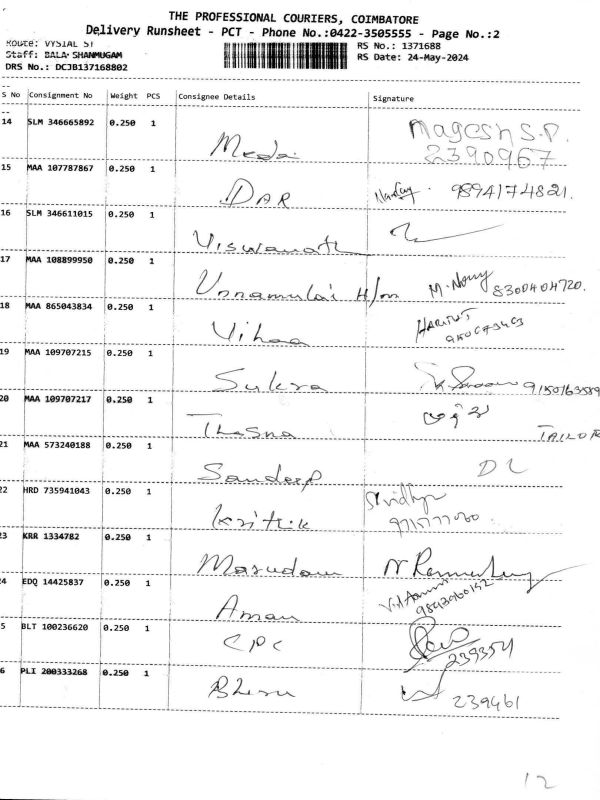 THE PROFESSIONAL COURIERS, COIMBATORE
Delivery Runsheet - PCT - Phone No.:0422-3505555 - Page No.:2
Route: VYSIAL ST
RS No.: 1371688
Staff: BALA SHANMUGAM
RS Date: 24-May-2024
DRS No.: DCJB137168802
S No Consignment No Weight PCS Consignee Details Signature
14 SLM 346665892 0.250 1 Magesh S.P.
Meda 2390967
15 MAA 107787867 0.250 1
DAR 9894174821.
16 SLM 346611015 0.250 1
Viswanath
17 MAA 108899950 0.250 1
Unnamulai H/m M. Nony 8300404720.
18 MAA 865043834 0.250 1
Vihaa
19 MAA 109707215 0.250 1
Sukra 9150763589
20 MAA 109707217 0.250 1
Thasna TAILOR
21 MAA 573240188 0.250 1
Sandeep DL
22 HRD 735941043 0.250 1 Srividhya
Krithik 9715777060.
23 KRR 1334782 0.250 1
Masudam
24 EDQ 14425837 0.250 1
Aman 9893960152
5 BLT 100236620 0.250 1
CPC 2393521
6 PLI 200333268 0.250 1
239461
12